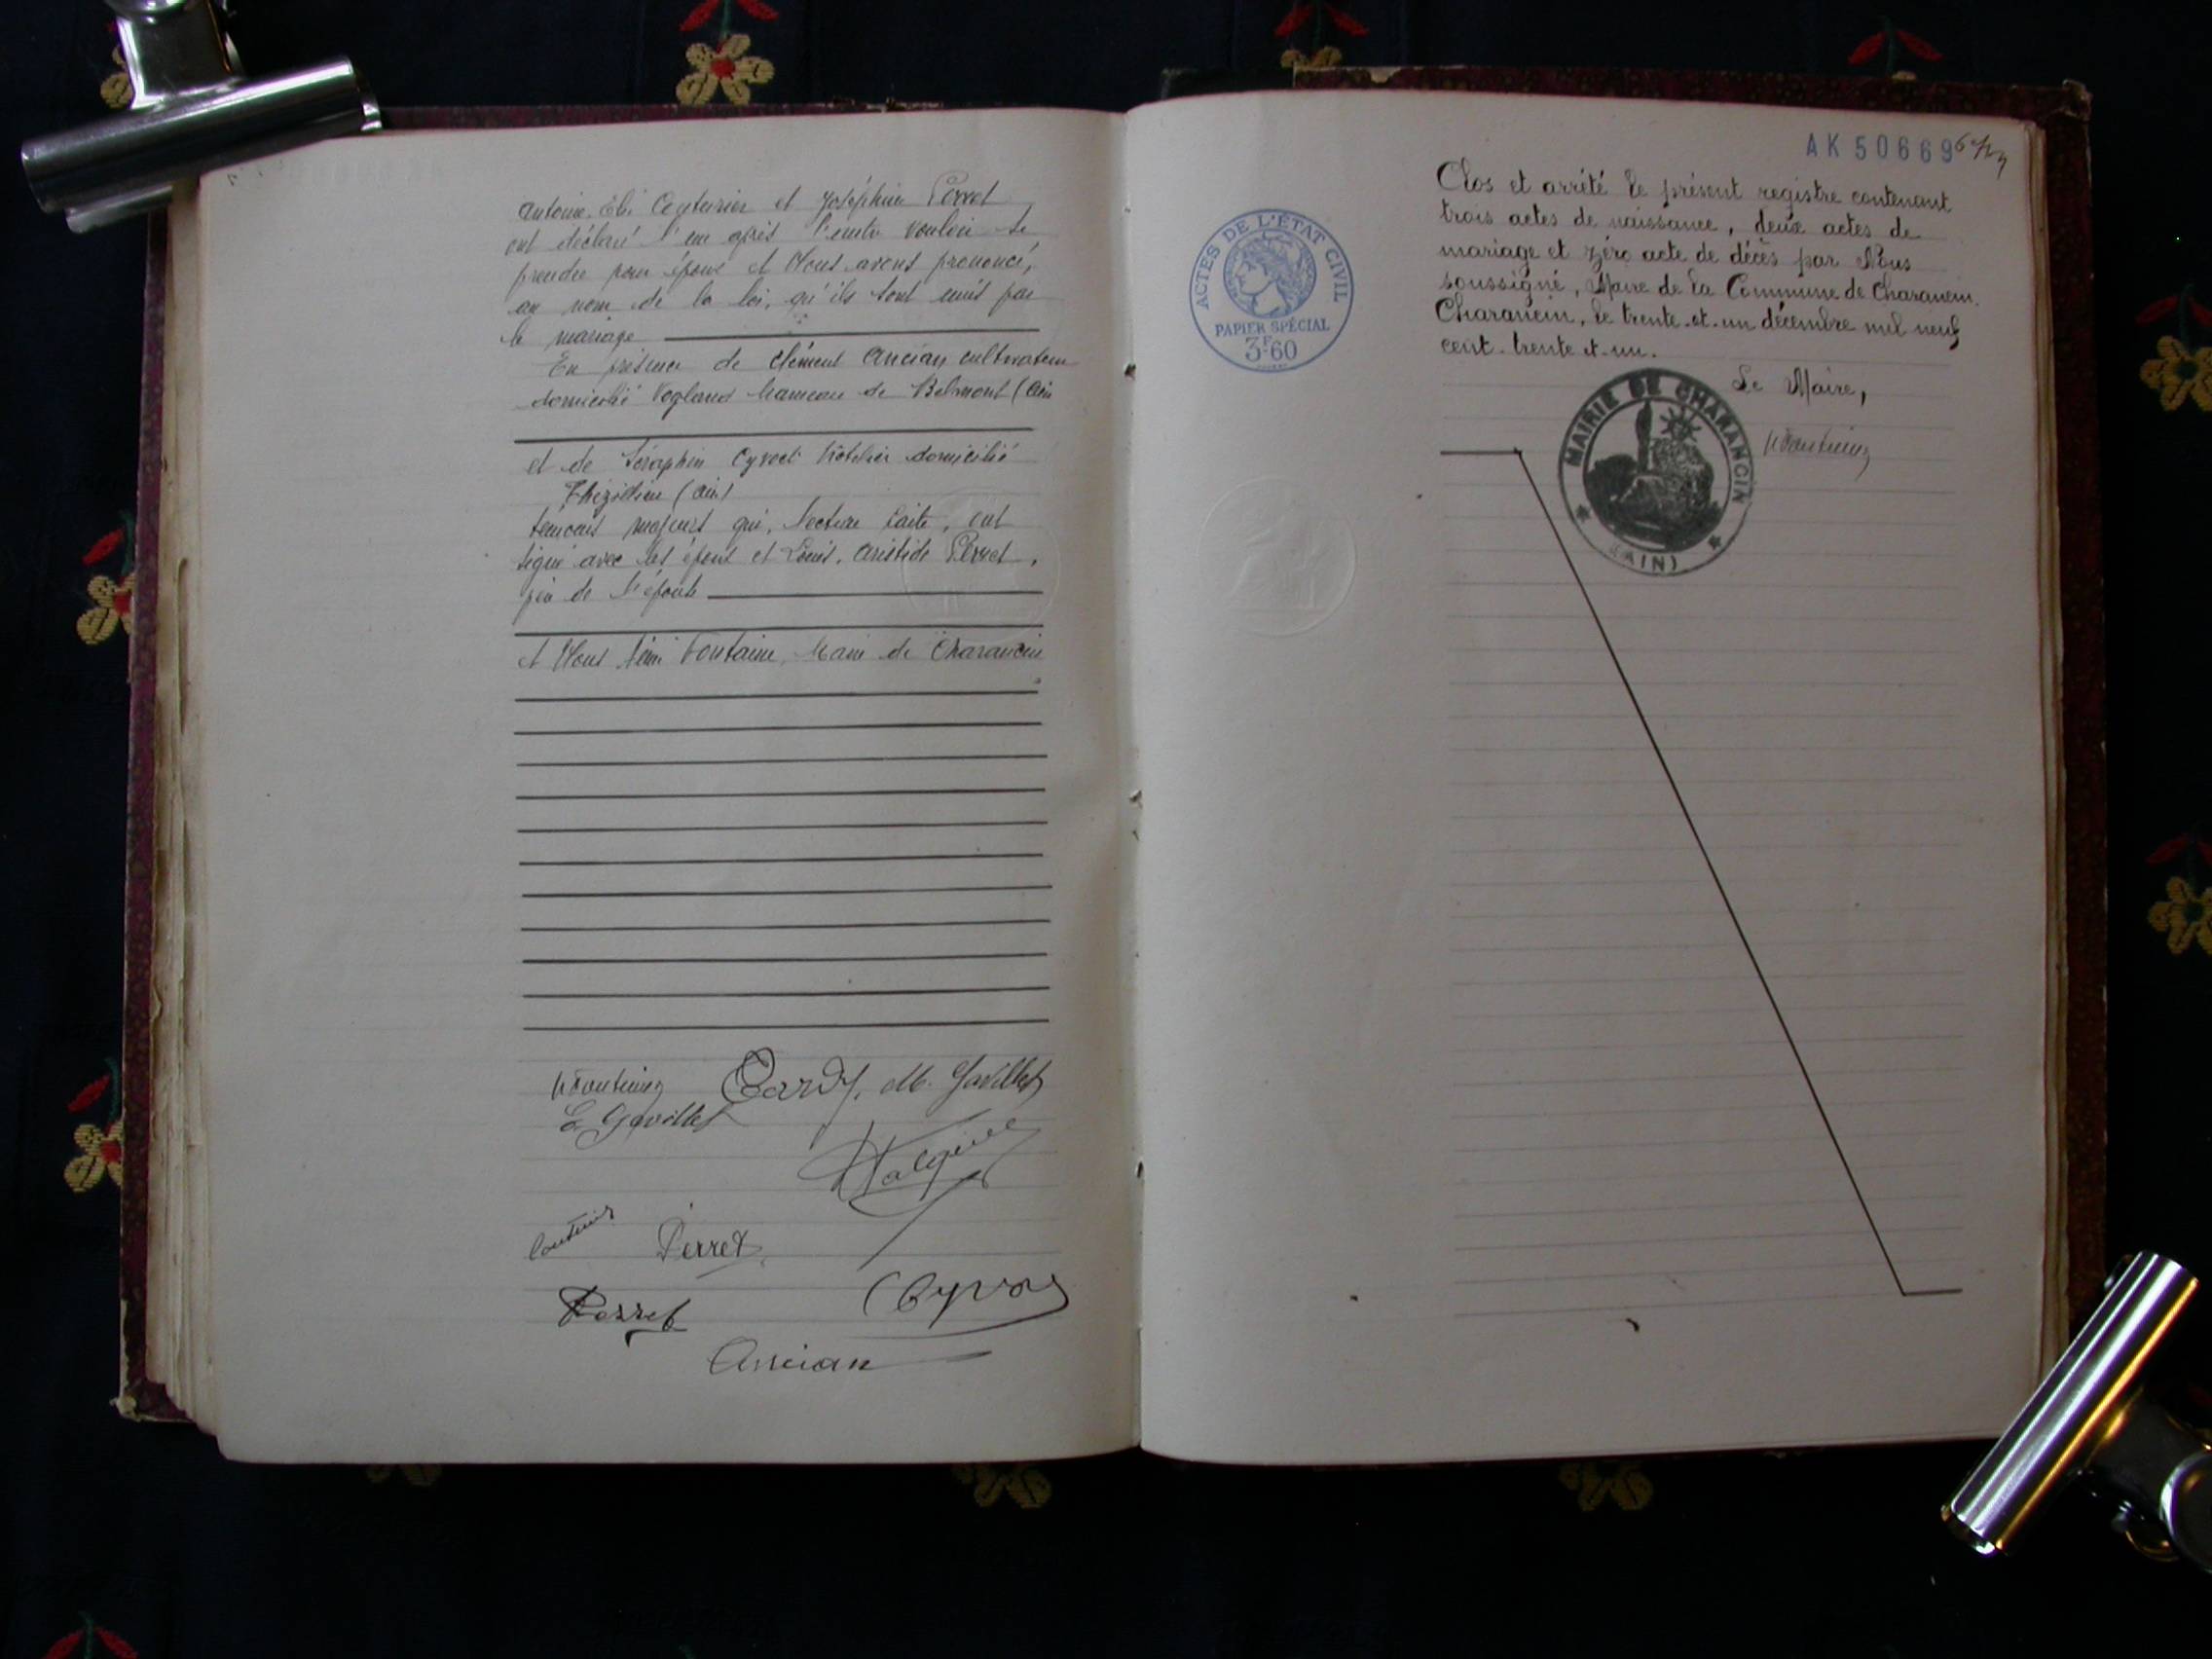 Antoine. Elie Couturier et Joséphine Perret
ont déclaré l'un après l'autre vouloir se
prendre pour époux et Nous avons prononcé,
au nom de la loi, qu'ils sont unis par
le mariage
En présence de Clément Ancian cultivateur
domicilié Vogland hameau de Belmont (Ain
et de Séraphin Cyvoct hôtelier domicilié
Thézillieu (Ain)
témoins majeurs qui, lecture faite, ont
signé avec les époux et Louis, Aristide Perret,
père de l'épouse
et Nous Rémi Fontaine, Maire de Charancin
RFontaine Gardy. M. Gavillet
E Gavillet
Couturier Perret
Perret Cyvoct
Ancian
AK 50669
ACTES DE L'ÉTAT CIVIL
PAPIER SPÉCIAL
3F60
Clos et arrêté le présent registre contenant
trois actes de naissance, deux actes de
mariage et zéro acte de décès par Nous
soussigné, Maire de la Commune de Charancin.
Charancin, le trente-et-un décembre mil neuf
cent-trente-et-un.
Le Maire,
RFontaine
MAIRIE DE CHARANCIN
(AIN)